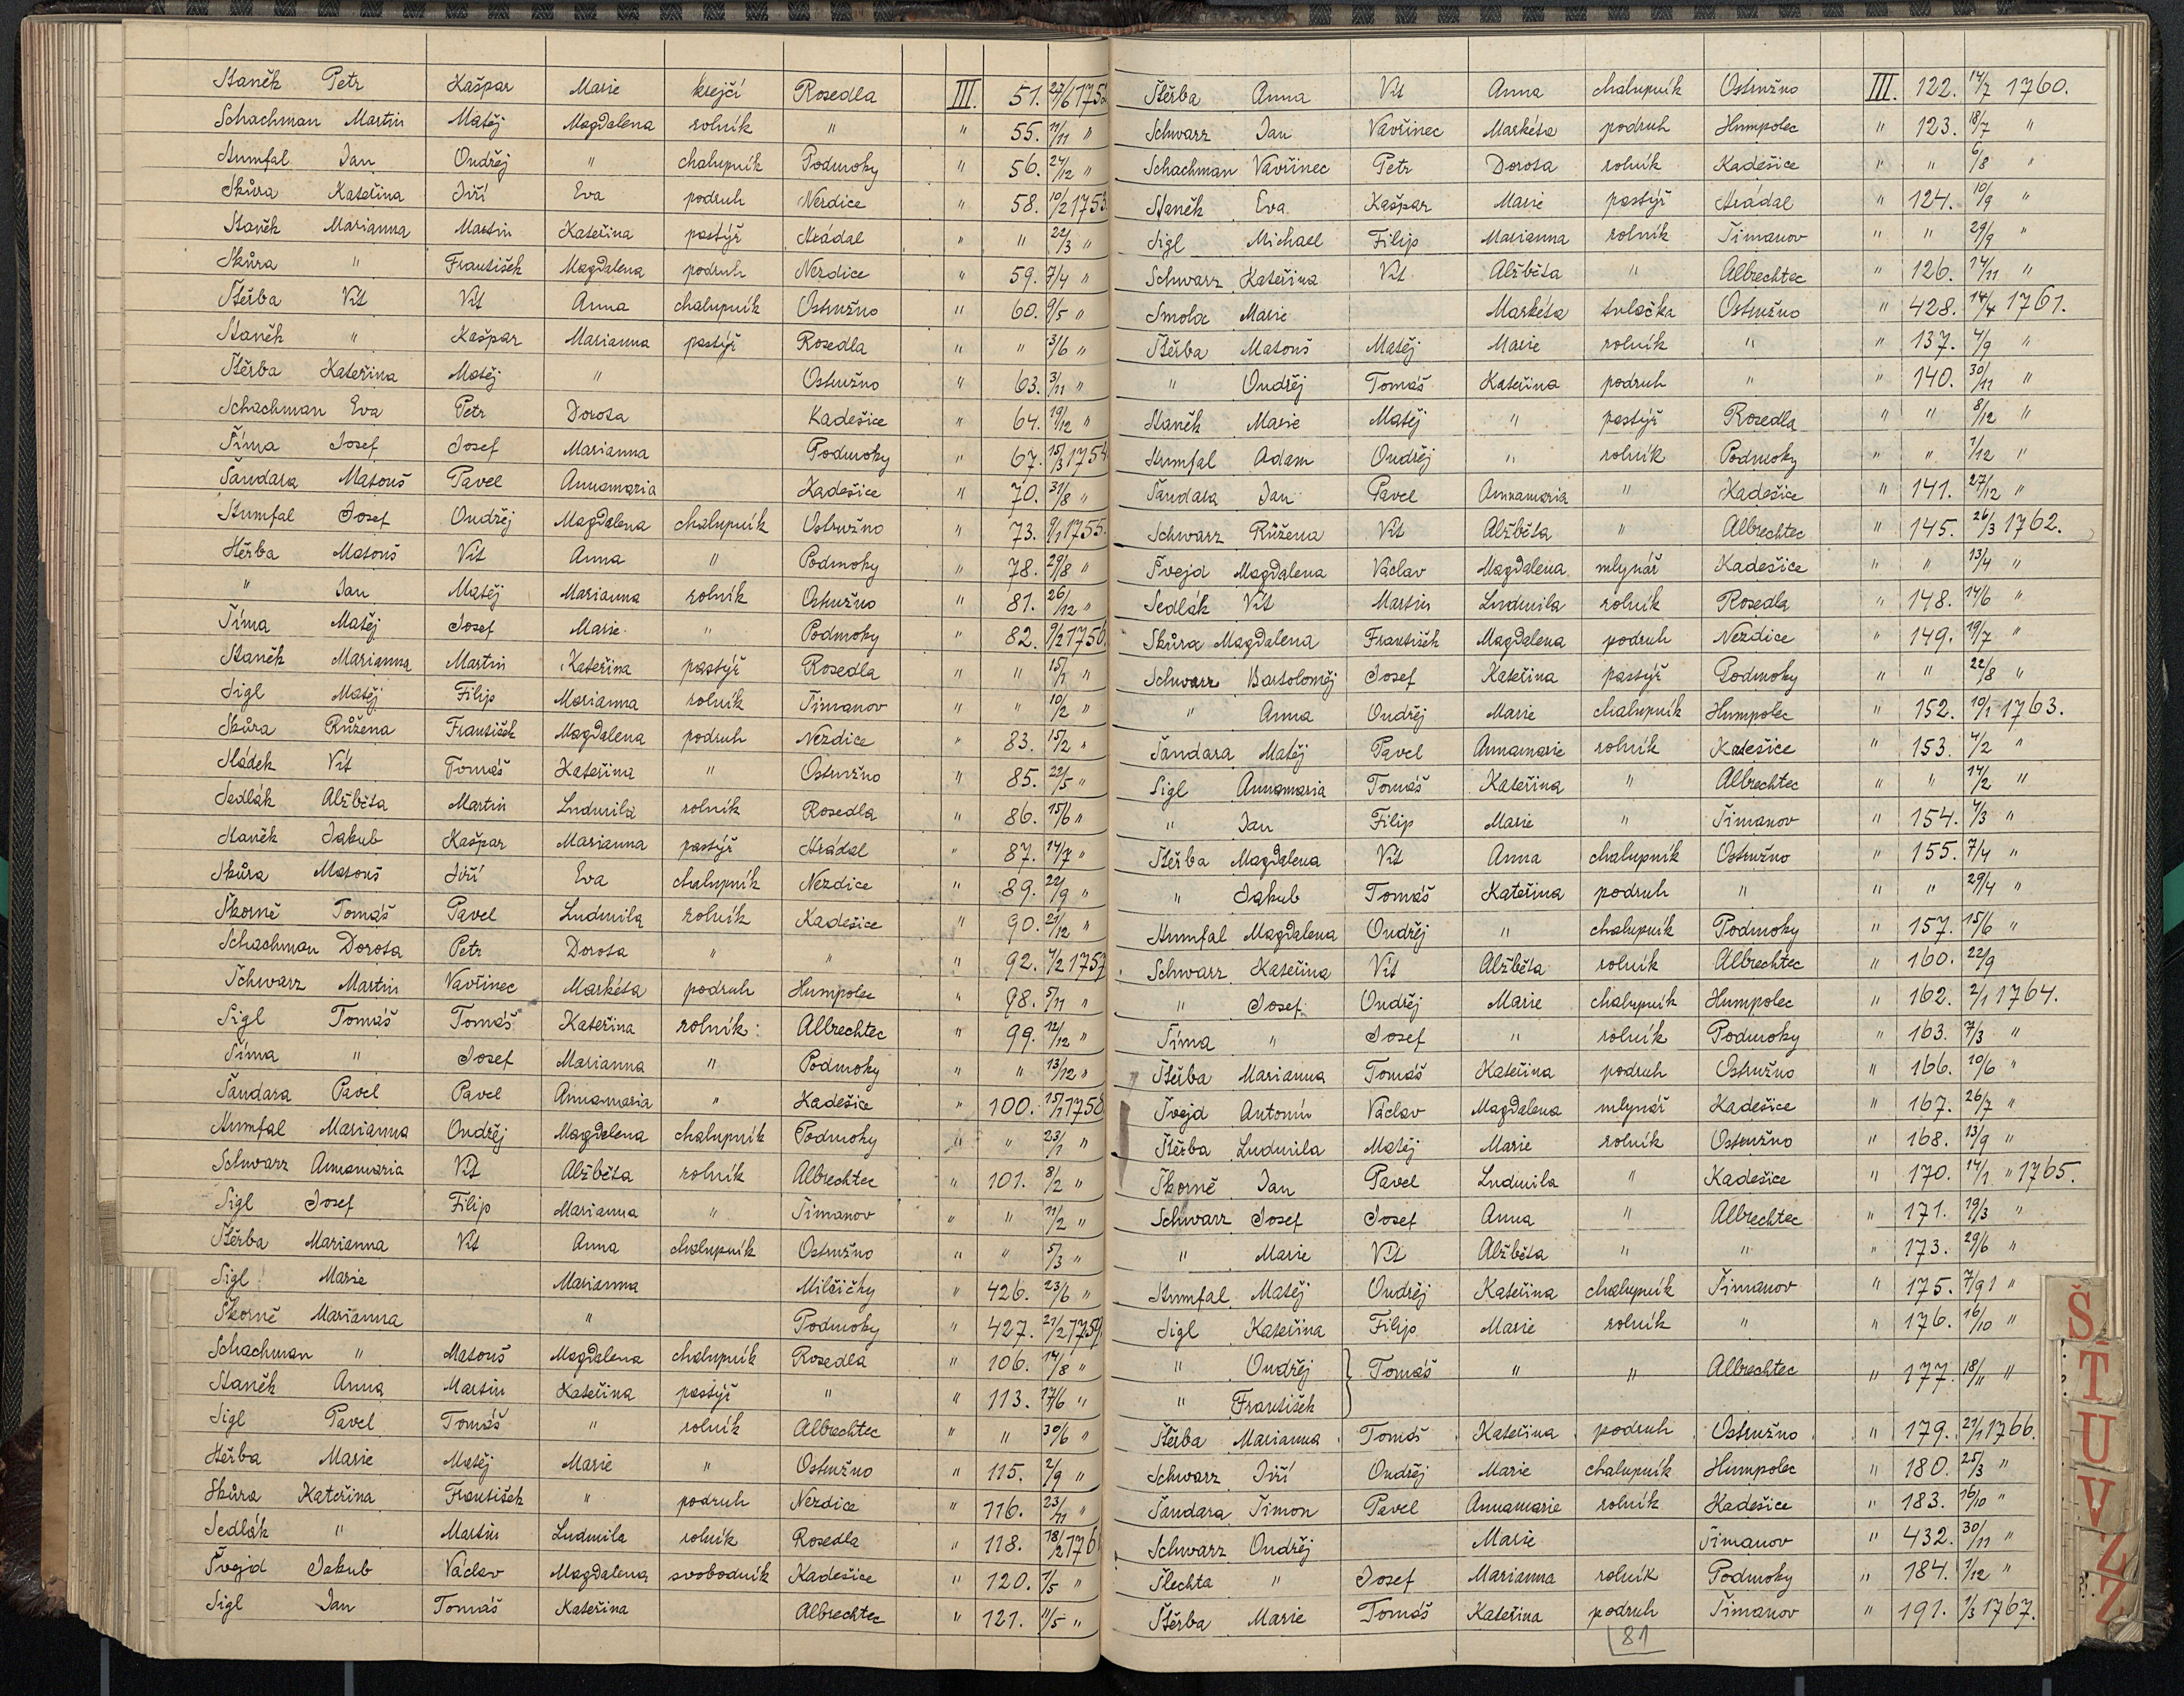 Staněk Petr Kašpar Marie krejčí Rosedla III. 51. 27/6 1752
Schachman Martin Matěj Magdalena rolník " " 55. 11/11 "
Štumfal Jan Ondřej " chalupník Podmoky " 56. 24/12 "
Skůra Kateřina Jiří Eva podruh Nezdice " 58. 10/2 1753.
Staněk Marianna Martin Kateřina pastýř Hrádal " " 22/3 "
Skůra " František Magdalena podruh Nezdice " 59. 7/4 "
Štěrba Vít Vít Anna chalupník Ostružno " 60. 9/5 "
Staněk " Kašpar Marianna pastýř Rosedla " " 3/6 "
Štěrba Kateřina Matěj " Ostružno " 63. 3/11 "
Schachman Eva Petr Dorota Kadešice " 64. 19/12 "
Šíma Josef Josef Marianna Podmoky " 67. 15/3 1754
Šandara Matouš Pavel Annamaria Kadešice " 70. 31/8 "
Štumfal Josef Ondřej Magdalena chalupník Ostružno " 73. 9/1 1755.
Štěrba Matouš Vít Anna " Podmoky " 78. 29/8 "
" Jan Matěj Marianna rolník Ostružno " 81. 26/12 "
Šíma Matěj Josef Marie " Podmoky " 82. 9/2 1756.
Staněk Marianna Martin Kateřina pastýř Rosedla " " 15/1 "
Sigl Matěj Filip Marianna rolník Šimanov " " 10/2 "
Skůra Růžena František Magdalena podruh Nezdice " 83. 15/2 "
Sládek Vít Tomáš Kateřina " Ostružno " 85. 22/5 "
Sedlák Alžběta Martin Ludmila rolník Rosedla " 86. 15/6 "
Staněk Jakub Kašpar Marianna pastýř Hrádal " 87. 14/7 "
Skůra Matouš Jiří Eva chalupník Nezdice " 89. 22/9 "
Škorně Tomáš Pavel Ludmila rolník Kadešice " 90. 21/12 "
Schachman Dorota Petr Dorota " " " 92. 4/2 1757
Schwarz Martin Vavřinec Markéta podruh Humpolec " 98. 5/11 "
Sigl Tomáš Tomáš Kateřina rolník Albrechtec " 99. 12/12 "
Šíma " Josef Marianna " Podmoky " " 13/12 "
Šandara Pavel Pavel Annamaria " Kadešice " 100. 15/1 1758
Štumfal Marianna Ondřej Magdalena chalupník Podmoky " " 23/1 "
Schwarz Annamaria Vít Alžběta rolník Albrechtec " 101. 8/2 "
Sigl Josef Filip Marianna " Šimanov " " 11/2 "
Štěrba Marianna Vít Anna chalupník Ostružno " " 5/3 "
Sigl Marie Marianna Milčičky " 426. 23/6 "
Škorně Marianna " Podmoky " 427. 21/2 1759.
Schachman " Matouš Magdalena chalupník Rosedla " 106. 14/8 "
Staněk Anna Martin Kateřina pastýř " " 113. 17/6 "
Sigl Pavel Tomáš " rolník Albrechtec " " 30/6 "
Štěrba Marie Matěj Marie " Ostružno " 115. 2/9 "
Skůra Kateřina František " podruh Nezdice " 116. 23/11 "
Sedlák " Martin Ludmila rolník Rosedla " 118. 18/2 176
Švejd Jakub Václav Magdalena svobodník Kadešice " 120. 1/5 "
Sigl Jan Tomáš Kateřina Albrechtec " 121. 11/5 "
Štěrba Anna Vít Anna chalupník Ostružno III. 122. 14/7 1760.
Schwarz Jan Vavřinec Markéta podruh Humpolec " 123. 18/7 "
Schachman Vavřinec Petr Dorota rolník Kadešice " " 6/8 "
Staněk Eva Kašpar Marie pastýř Hrádal " 124. 10/9 "
Sigl Michael Filip Marianna rolník Šimanov " " 29/9 "
Schwarz Kateřina Vít Alžběta " Albrechtec " 126. 14/11 "
Smola Marie Markéta tulačka Ostružno " 428. 14/4 1761.
Štěrba Matouš Matěj Marie rolník " " 137. 4/9 "
" Ondřej Tomáš Kateřina podruh " " 140. 30/11 "
Staněk Marie Matěj " pastýř Rosedla " " 8/12 "
Štumfal Adam Ondřej " rolník Podmoky " " 1/12 "
Šandara Jan Pavel Annamaria " Kadešice " 141. 27/12 "
Schwarz Růžena Vít Alžběta " Albrechtec " 145. 26/3 1762.
Švejd Magdalena Václav Magdalena mlynář Kadešice " " 13/4 "
Sedlák Vít Martin Ludmila rolník Rosedla " 148. 14/6 "
Skůra Magdalena František Magdalena podruh Nezdice " 149. 19/7 "
Schwarz Bartoloměj Josef Kateřina pastýř Podmoky " " 22/8 "
" Anna Ondřej Marie chalupník Humpolec " 152. 10/1 1763.
Šandara Matěj Pavel Annamarie rolník Kadešice " 153. 4/2 "
Sigl Annamaria Tomáš Kateřina " Albrechtec " " 14/2 "
" Jan Filip Marie " Šimanov " 154. 4/3 "
Štěrba Magdalena Vít Anna chalupník Ostružno " 155. 7/4 "
" Jakub Tomáš Kateřina podruh " " " 29/4 "
Štumfal Magdalena Ondřej " chalupník Podmoky " 157. 15/6 "
Schwarz Kateřina Vít Alžběta rolník Albrechtec " 160. 22/9
" Josef Ondřej Marie chalupník Humpolec " 162. 2/1 1764.
Šíma " Josef " rolník Podmoky " 163. 7/3 "
Štěrba Marianna Tomáš Kateřina podruh Ostružno " 166. 10/6 "
Švejd Antonín Václav Magdalena mlynář Kadešice " 167. 26/7 "
Štěrba Ludmila Matěj Marie rolník Ostružno " 168. 13/9 "
Škorně Jan Pavel Ludmila " Kadešice " 170. 14/1 " 1765.
Schwarz Josef Josef Anna " Albrechtec " 171. 19/3 "
" Marie Vít Alžběta " " " 173. 29/6 "
Štumfal Matěj Ondřej Kateřina chalupník Šimanov " 175. 7/9 1 "
Sigl Kateřina Filip Marie rolník " " 176. 16/10 "
" Ondřej } Tomáš " " Albrechtec " 177. 18/11 "
" František
Štěrba Marianna Tomáš Kateřina podruh Ostružno " 179. 21/1 1766.
Schwarz Jiří Ondřej Marie chalupník Humpolec " 180. 25/3 "
Šandara Šimon Pavel Annamarie rolník Kadešice " 183. 16/10 "
Schwarz Ondřej Marie Šimanov " 432. 30/11 "
Šlechta " Josef Marianna rolník Podmoky " 184. 1/12 "
Štěrba Marie Tomáš Kateřina podruh Šimanov " 191. 1/3 1767.
81
Š
T
U
V
Z
Ž